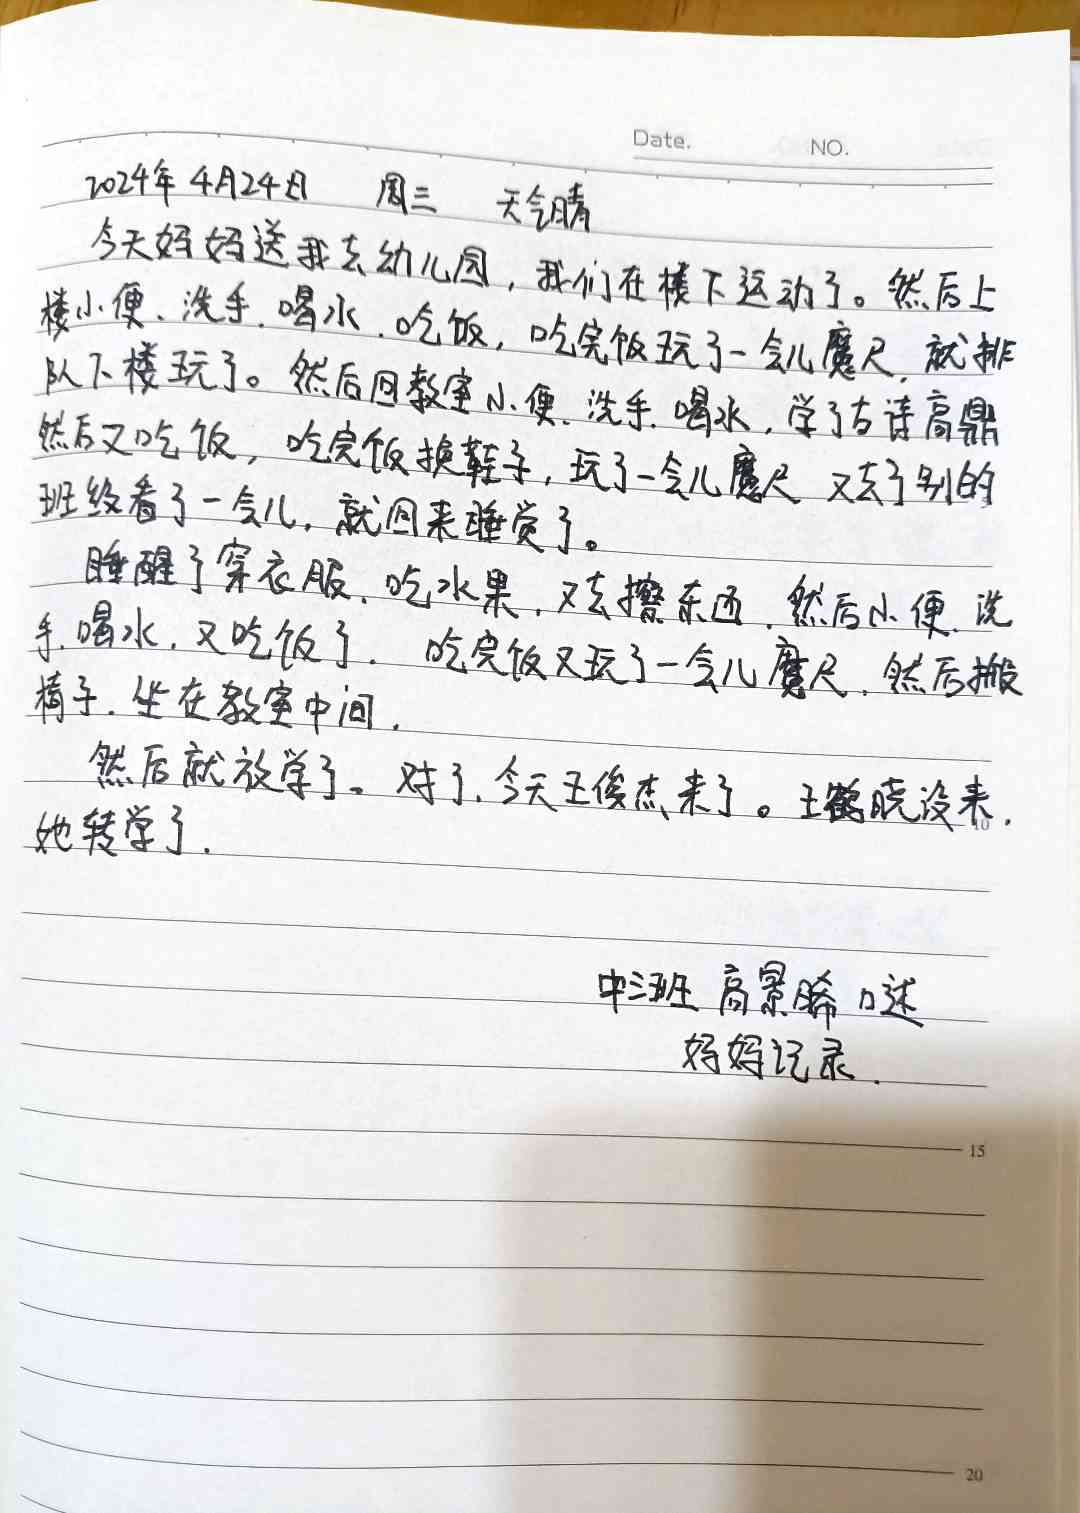 Date.
NO.
2024年4月24日 周三 天气晴
今天妈妈送我去幼儿园，我们在楼下运动了。然后上
楼小便、洗手、喝水、吃饭，吃完饭玩了一会儿魔尺，就排
队下楼玩了。然后回教室小便、洗手、喝水，学了古诗高鼎
然后又吃饭，吃完饭换鞋子，玩了一会儿魔尺 又去了别的
班级看了一会儿，就回来睡觉了。
睡醒了穿衣服、吃水果，又去擦东西，然后小便、洗
手、喝水，又吃饭了．吃完饭又玩了一会儿魔尺，然后搬
椅子．坐在教室中间．
然后就放学了。对了，今天王俊杰来了。王鹤晓没来，
10
她转学了．
中三班 高景晞 口述
妈妈记录．
15
20